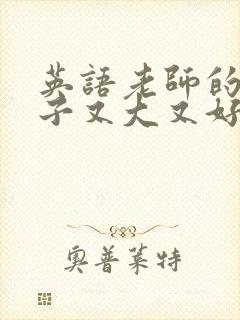 英語老師的
子又大又好
奧普萊特